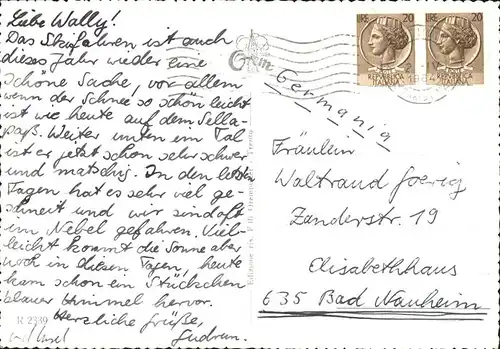 Liebe Wally!
Das Skifahren ist auch
dieses Jahr wieder eine
schöne Sache, vor allem
wenn der Schnee so schön leicht
ist wie heute auf dem Sella-
paß. Weiter unten im Tal
ist er jetzt schon sehr schwer
und matschig. In den letzten
Tagen hat es sehr viel ge-
schneit und wir sind oft
im Nebel gefahren. Viel-
leicht kommt die Sonne aber
noch in diesen Tagen, heute
kam schon ein Stückchen
blauer Himmel hervor.
Herzliche Grüße,
Gudrun.
R 2339
LIRE 20
LIRE 20
Germania
Fräulein
Waltraud Goerig
Zanderstr. 19
Elisabethhaus
635 Bad Nauheim